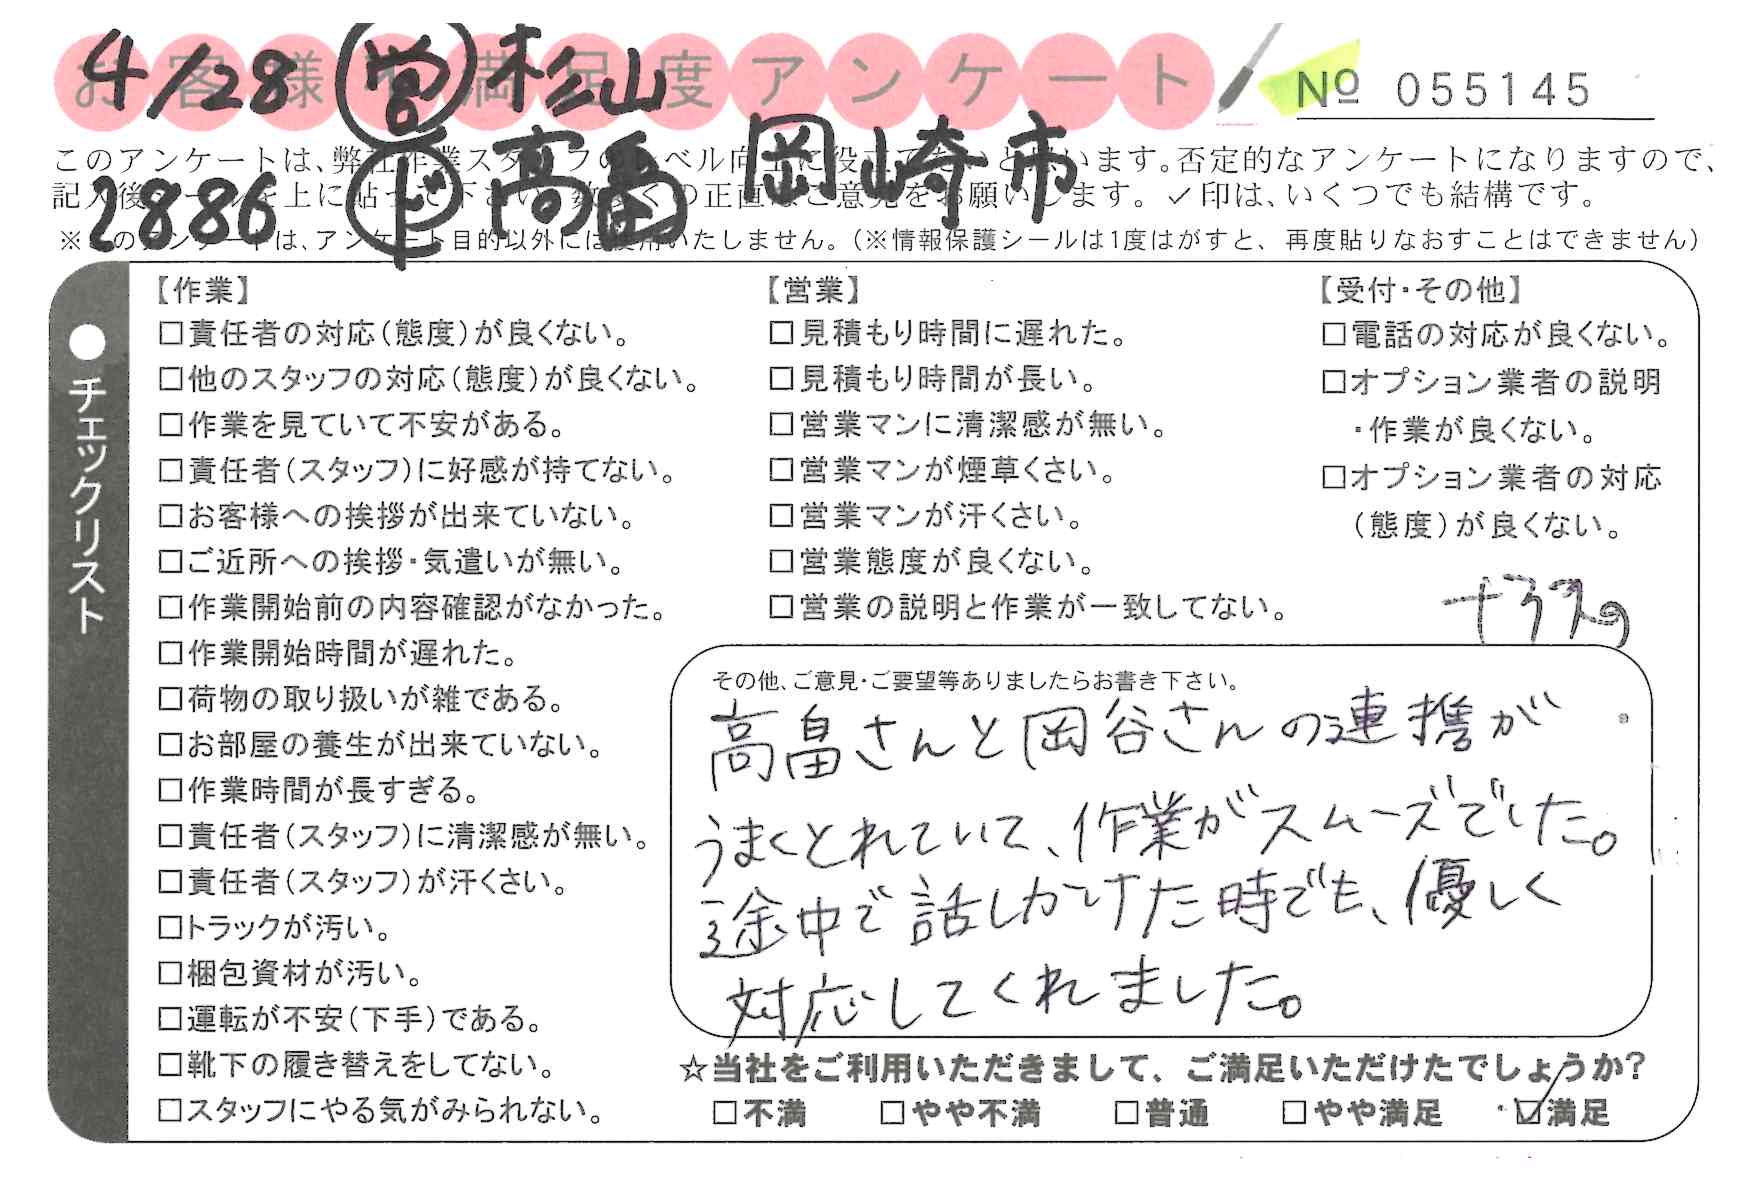 お客様不満足度アンケート
№ 055145
4/28 営 杉山
2886 ド 高畠 岡崎市
このアンケートは、弊社作業スタッフのレベル向上に役立てたいと思います。否定的なアンケートになりますので、
記入後シールを上に貼って下さい。数多くの正直なご意見をお願いします。✓印は、いくつでも結構です。
※このアンケートは、アンケート目的以外には使用いたしません。(※情報保護シールは1度はがすと、再度貼りなおすことはできません)
●チェックリスト
【作業】
□責任者の対応(態度)が良くない。
□他のスタッフの対応(態度)が良くない。
□作業を見ていて不安がある。
□責任者(スタッフ)に好感が持てない。
□お客様への挨拶が出来ていない。
□ご近所への挨拶・気遣いが無い。
□作業開始前の内容確認がなかった。
□作業開始時間が遅れた。
□荷物の取り扱いが雑である。
□お部屋の養生が出来ていない。
□作業時間が長すぎる。
□責任者(スタッフ)に清潔感が無い。
□責任者(スタッフ)が汗くさい。
□トラックが汚い。
□梱包資材が汚い。
□運転が不安(下手)である。
□靴下の履き替えをしてない。
□スタッフにやる気がみられない。
【営業】
□見積もり時間に遅れた。
□見積もり時間が長い。
□営業マンに清潔感が無い。
□営業マンが煙草くさい。
□営業マンが汗くさい。
□営業態度が良くない。
□営業の説明と作業が一致してない。
【受付・その他】
□電話の対応が良くない。
□オプション業者の説明
・作業が良くない。
□オプション業者の対応
(態度)が良くない。
その他、ご意見・ご要望等ありましたらお書き下さい。
高畠さんと岡谷さんの連携が
うまくとれていて、作業がスムーズでした。
途中で話しかけた時でも、優しく
対応してくれました。
☆当社をご利用いただきまして、ご満足いただけたでしょうか?
□不満 □やや不満 □普通 □やや満足 ☑満足